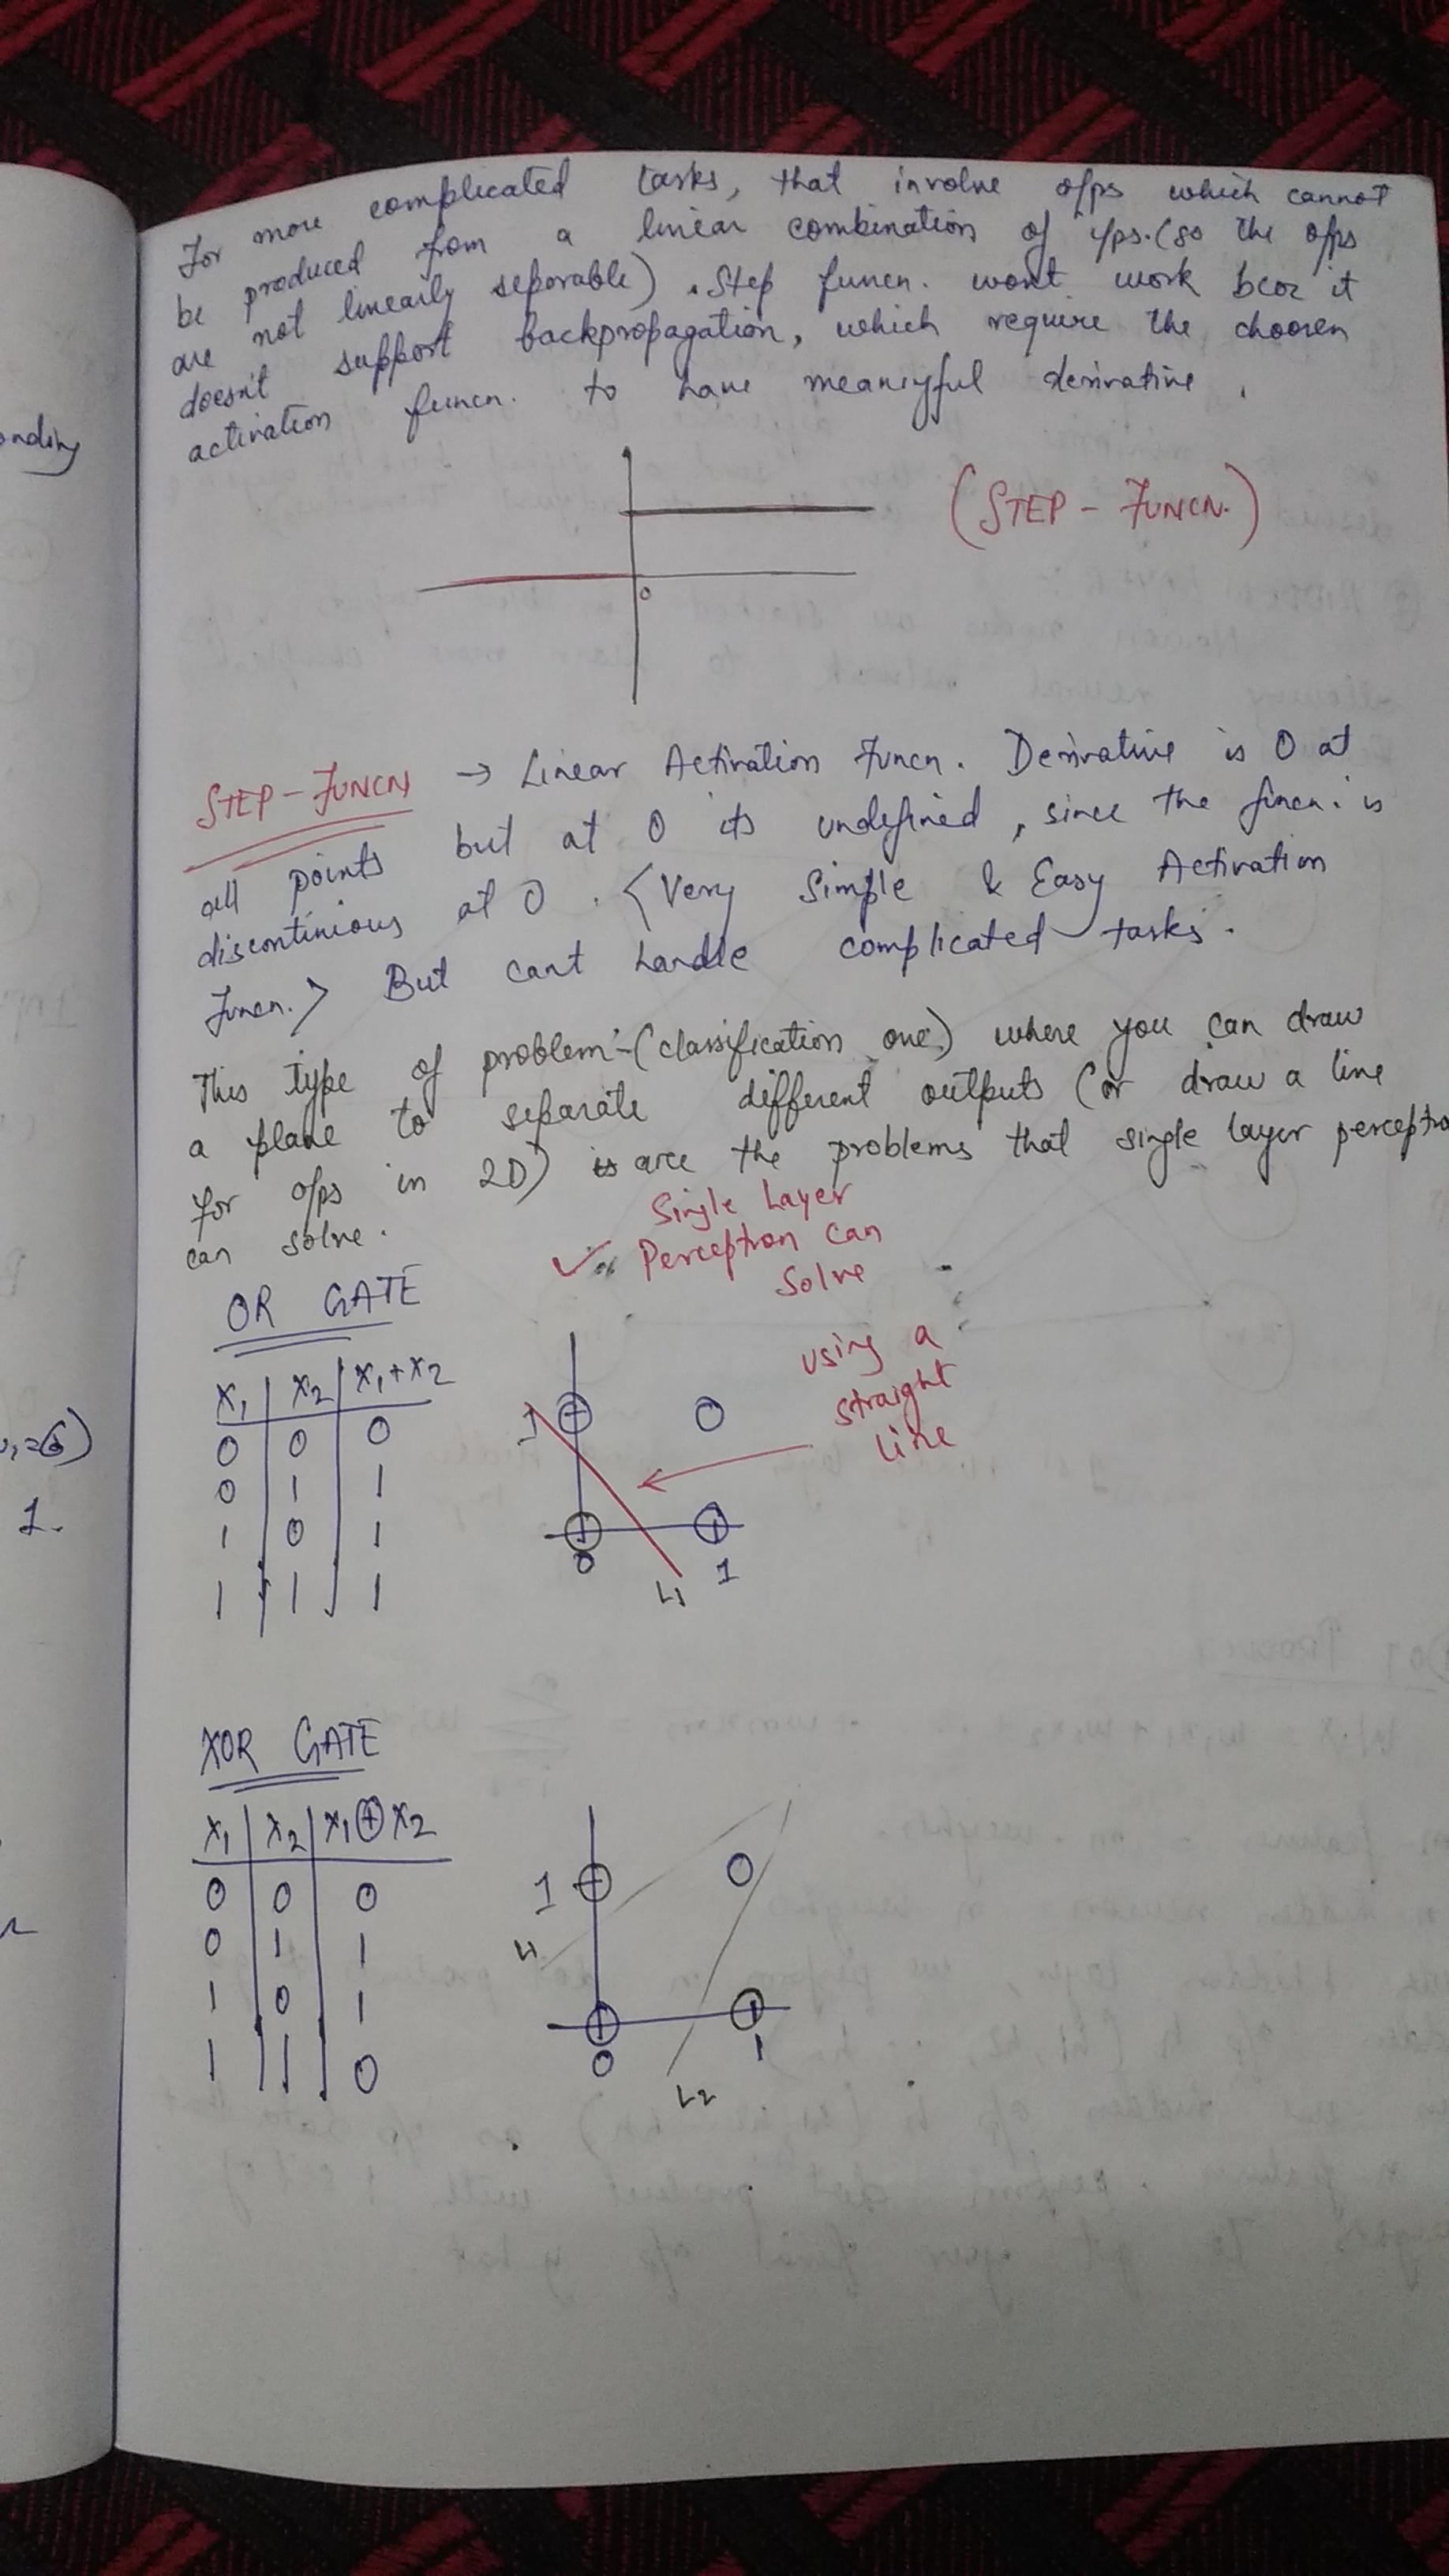 For more complicated tasks, that involve o/ps which cannot
be produced from a linear combination of i/ps. (so the o/ps
are not linearly seporable). Step funcn. wont work bcoz it
doesn't support backpropagation, which require the choosen
activation funcn. to have meaningful derivative.
(STEP - FUNCN.)
0
STEP - FUNCN → Linear Activation Funcn. Derivative is 0 at
all points but at 0 its undefined, since the funcn. is
discontinious at 0. <Very Simple & Easy Activation
Funcn.> But cant handle complicated tasks.
This type of problem - (classification one) where you can draw
a plane to separate different outputs (or draw a line
for o/ps in 2D) are the problems that single layer perceptro
can solve.
Single Layer
✓ Perceptron can
Solve
OR GATE
using a
straight
line
x1 | x2 | x1+x2
0 | 0 | 0
0 | 1 | 1
1 | 0 | 1
1 | 1 | 1
1
0
L1
1
XOR GATE
x1 | x2 | x1⊕x2
0 | 0 | 0
0 | 1 | 1
1 | 0 | 1
1 | 1 | 0
1
L1
0
1
L2
onding
1.